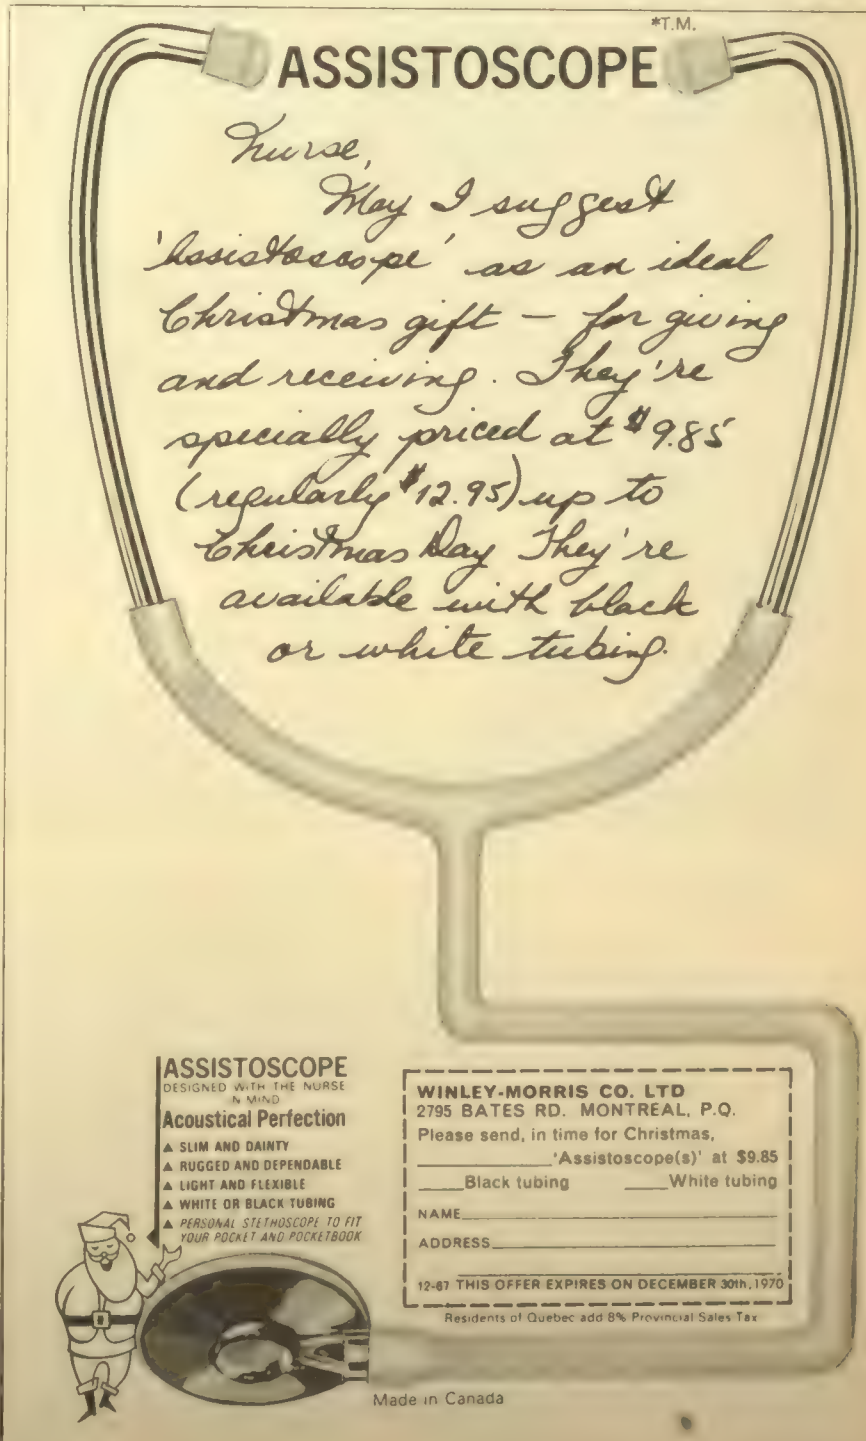 *T.M.
ASSISTOSCOPE
Nurse,
May I suggest
'Assistoscope' as an ideal
Christmas gift – for giving
and receiving. They're
specially priced at $9.85
(regularly $12.95) up to
Christmas Day They're
available with black
or white tubing.
ASSISTOSCOPE
DESIGNED WITH THE NURSE
IN MIND
Acoustical Perfection
▲ SLIM AND DAINTY
▲ RUGGED AND DEPENDABLE
▲ LIGHT AND FLEXIBLE
▲ WHITE OR BLACK TUBING
▲ PERSONAL STETHOSCOPE TO FIT
YOUR POCKET AND POCKETBOOK
WINLEY-MORRIS CO. LTD
2795 BATES RD. MONTREAL, P.Q.
Please send, in time for Christmas,
________'Assistoscope(s)' at $9.85
____Black tubing ____White tubing
NAME________
ADDRESS________
12-67 THIS OFFER EXPIRES ON DECEMBER 30th, 1970
Residents of Quebec add 8% Provincial Sales Tax
Made in Canada